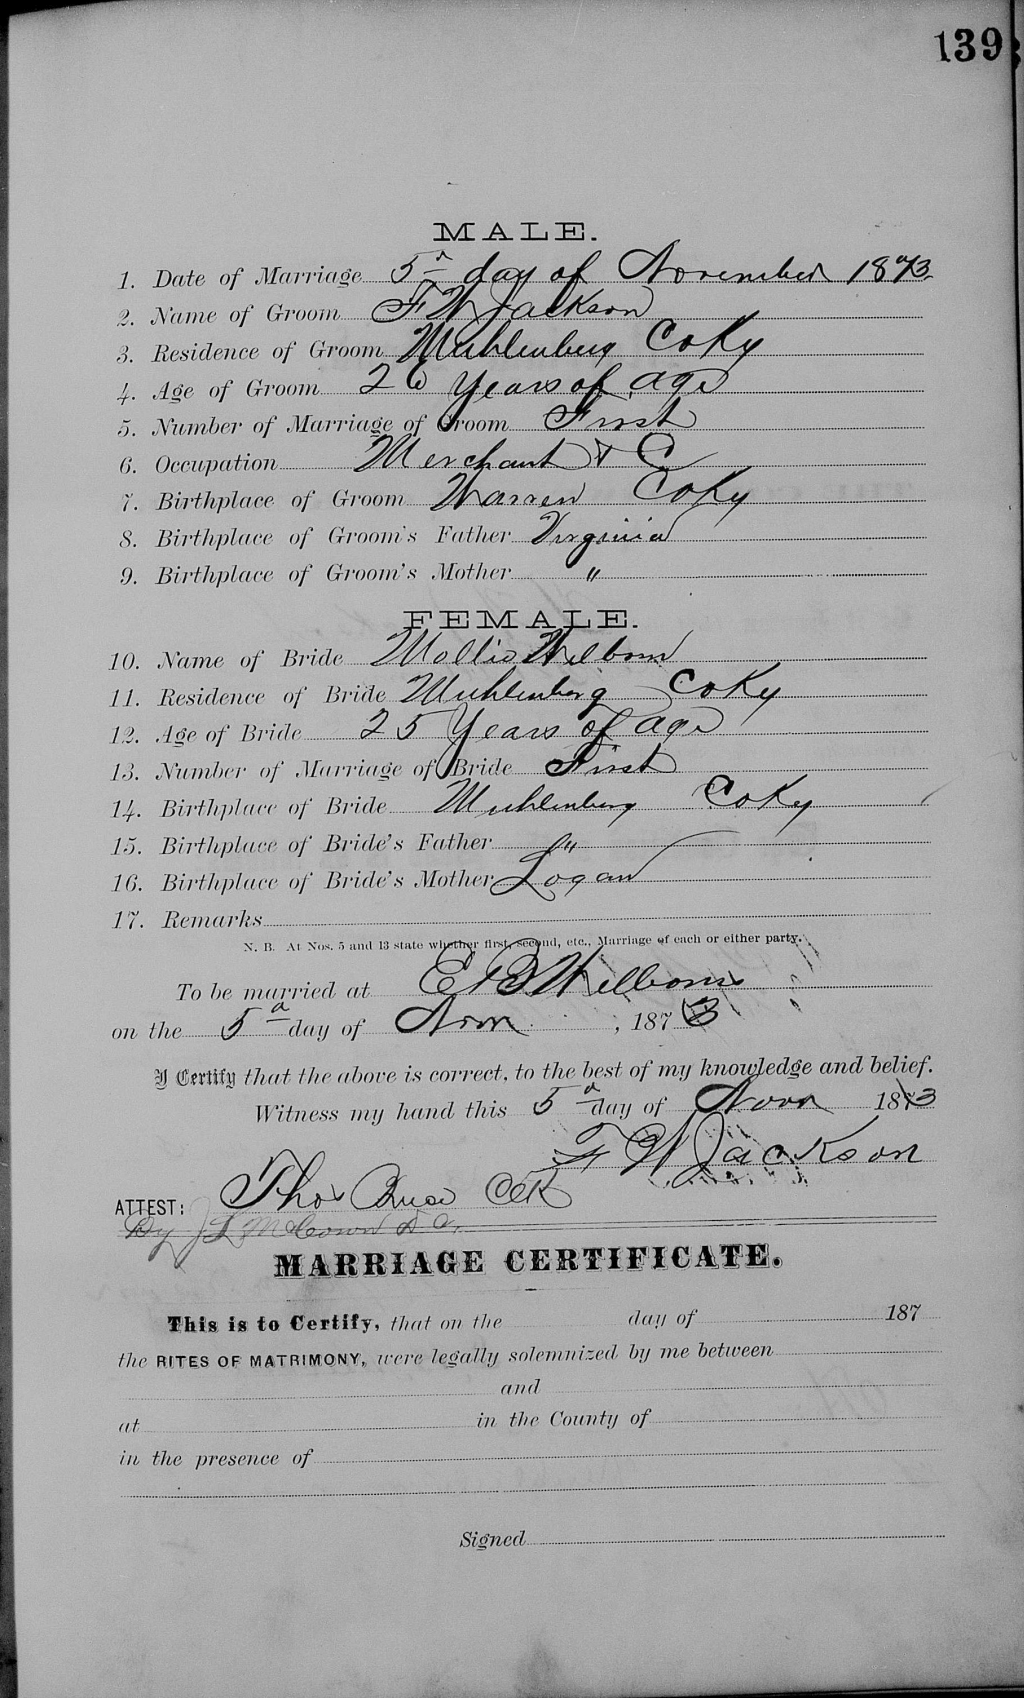 139
MALE.
1. Date of Marriage 5th day of November 1873
2. Name of Groom F W Jackson
3. Residence of Groom Muhlenberg Co Ky
4. Age of Groom 26 Years of age
5. Number of Marriage of Groom First
6. Occupation Merchant &C
7. Birthplace of Groom Warren Co Ky
8. Birthplace of Groom's Father Virginia
9. Birthplace of Groom's Mother "
FEMALE.
10. Name of Bride Mollie Welborn
11. Residence of Bride Muhlenberg Co Ky
12. Age of Bride 25 Years of age
13. Number of Marriage of Bride First
14. Birthplace of Bride Muhlenberg Co Ky
15. Birthplace of Bride's Father "
16. Birthplace of Bride's Mother Logan
17. Remarks
N. B. At Nos. 5 and 13 state whether first, second, etc., Marriage of each or either party.
To be married at E B Welborns
on the 5th day of Novr , 1873
I Certify that the above is correct, to the best of my knowledge and belief.
Witness my hand this 5th day of Novr 1873
F W Jackson
ATTEST: Thos Bruce Clk
By J L McCown D C.
MARRIAGE CERTIFICATE.
This is to Certify, that on the day of 187
the RITES OF MATRIMONY, were legally solemnized by me between
and
at in the County of
in the presence of
Signed